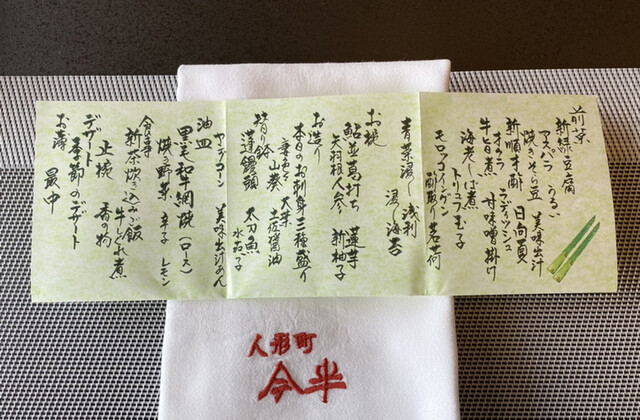 前菜
新緑豆腐 うるい
アスパラ 美味出汁
焼きそら豆 日向夏
新順才酢 ラディッシュ
オクラ 甘味噌掛け
牛旨煮
海老しば煮
トリュフ玉子
モロッコインゲン
酢取り茗荷
青菜浸し 浅利
浸し海苔
お椀
鮎並葛打ち 蓮芋
矢羽根人参 新柚子
お造り
本日のお刺身三種盛り
妻色々 大葉
山葵 土佐醤油
蓬饅頭 太刀魚
ヤングコーン 美味出汁あん
油皿
黒毛和牛網焼(ロース)
焼き野菜 辛子 レモン
食事
新茶炊き込みご飯
牛しぐれ煮
止椀 香の物
デザート
季節のデザート
お薄 最中
人形町
今半